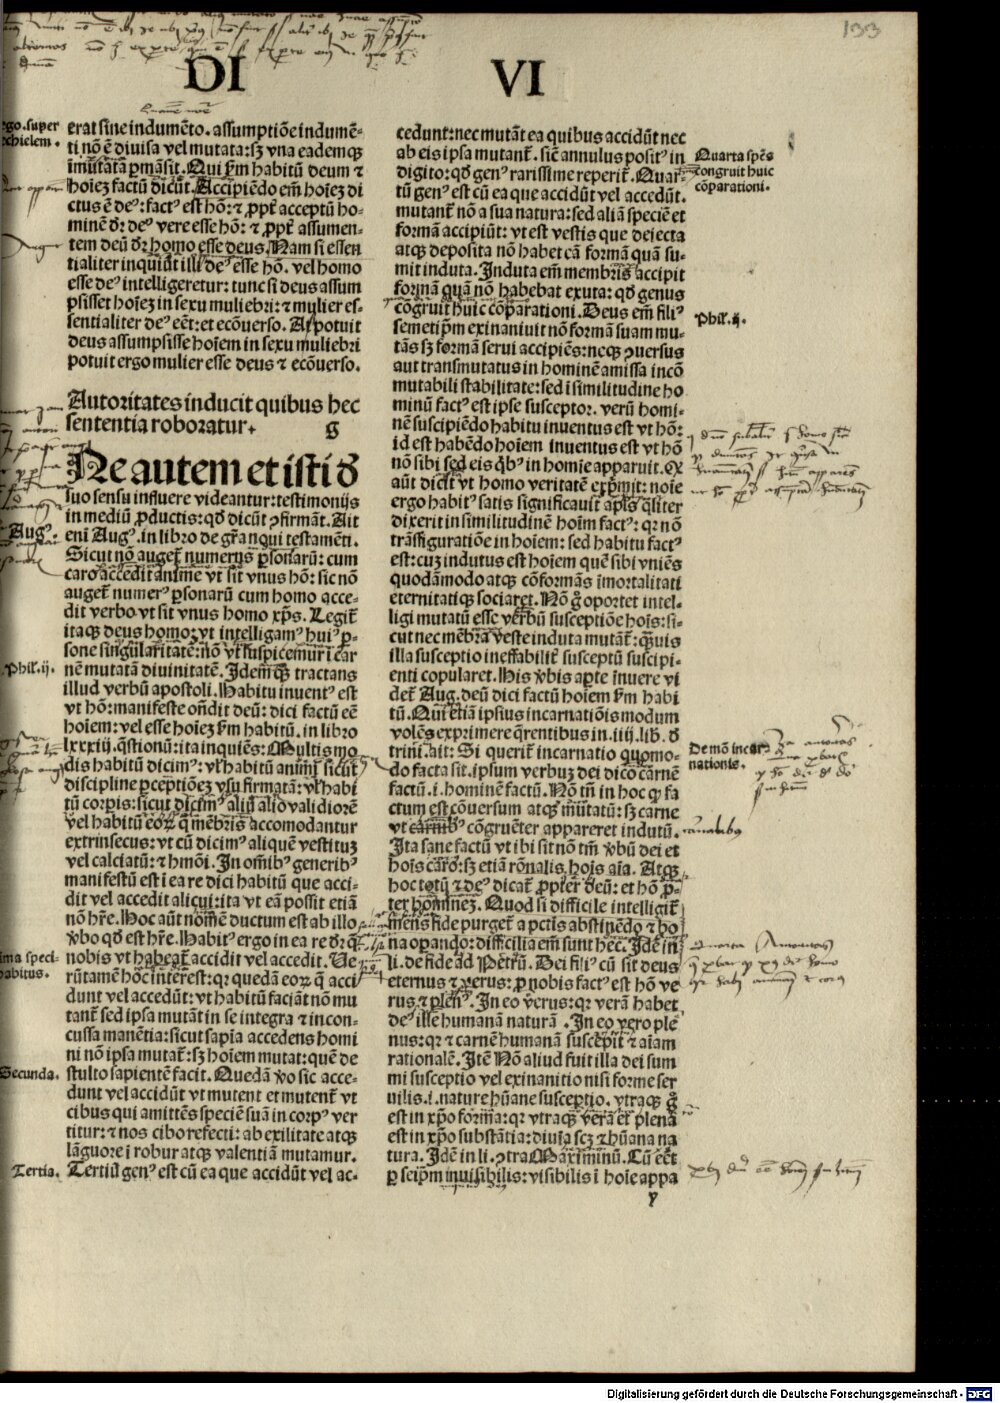 133
DI VI
ego. super
echielem.
erat sine indumēto. assumptiōe indumē-
ti nō ē diuisa vel mutata: sꝫ vna eademqꝫ
īmutata ꝑmāsit. Qui ẜm habitū deum ⁊
hoīeꝫ factū dicūt. Accipiēdo em̄ hoīeꝫ di
ctus ē deꝰ: factꝰ est hō: ⁊ ꝓpt̄ acceptū ho-
minē d̄r deꝰ vere esse hō: ⁊ ꝓpt̄ assumen-
tem deū d̄r homo esse deus. Nam si essen
tialiter inquiūt illi deꝰ esse hō. vel homo
esse deꝰ intelligeretur: tunc si deus assum
psisset hoīeꝫ in sexu muliebri: ⁊ mulier es-
sentialiter deꝰ eēt: et ecōuerso. At potuit
deus assumpsisse hoīem in sexu muliebri
potuit ergo mulier esse deus ⁊ ecōuerso.
Autoritates inducit quibus hec
sententia roboratur. g
Ne autem et isti d̄
suo sensu influere videantur: testimonijs
in mediū ꝓductis: qd̄ dicūt ꝯfirmāt. Ait
Augꝰ.
eni Augꝰ. in libro de gr̄a noui testamēti.
Sicut nō auget̄ numerus ꝑsonarū: cum
caro accedit anime vt sit vnus hō: sic nō
auget̄ numerꝰ ꝑsonarū cum homo acce-
dit verbo vt sit vnus homo xp̄s. Legit̄
itaqꝫ deus homo: vt intelligamꝰ huiꝰ ꝑ-
sone singularitatē: nō vt suspicemur ī car
Phil. ij.
nē mutatā diuinitatē. Idemqꝫ tractans
illud verbū apostoli. Habitu inuentꝰ est
vt hō: manifeste on̄dit deū: dici factū eē
hoīem: vel esse hoīeꝫ ẜm habitū. in libro
lxxxiij. q̄stionū: ita inquiēs: Multis mo
dis habitū dicimꝰ: vl̓ habitū animi sicut
discipline ꝑceptiōeꝫ vsu firmatā: vl̓ habi
tū corpis: sicut dicimꝰ aliū alio validiorē
vel habitū eoꝝ q̄ mēbris accomodantur
extrinsecus: vt cū dicimꝰ aliquē vestituꝫ
vel calciatū: ⁊ hmōi. In om̄ibꝰ generibꝰ
manifestū est ī ea re dici habitū que acci-
dit vel accedit alicui: ita vt eā possit etiā
nō hr̄e. Hoc aūt nomē ductum est ab illo
v̄bo qd̄ est hr̄e. Habitꝰ ergo in ea re d̄r q̄
ima speci-
habitus.
nobis vt habeat̄ accidit vel accedit. Ue
rūtamē hoc īnterest: qr quedā eoꝝ q̄ acci
dunt vel accedūt: vt habitū faciāt nō mu
tant̄ sed ipsa mutāt in se integra ⁊ incon-
cussa manētia: sicut sapīa accedens homi
ni nō ipsa mutat̄: sꝫ hoīem mutat: quē de
Secunda.
stulto sapientē facit. Quedā v̄o sic acce-
dunt vel accidūt vt mutent et mutent̄ vt
cibus qui amittēs speciē suā in corpꝰ ver
titur: ⁊ nos cibo refecti: ab exilitate atqꝫ
lāguore ī robur atqꝫ valentiā mutamur.
Tertia.
Tertiū genꝰ est cū ea que accidūt vel ac-
cedunt: nec mutāt ea quibus accidūt nec
ab eis ipsa mutant̄. sic annulus positꝰ in
Quarta spēs
congruit huic
cōparationi.
digito: qd̄ genꝰ rarissime reperit̄. Quar-
tū genꝰ est cū ea que accidūt vel accedūt.
mutant̄ nō a sua natura: sed aliā speciē et
formā accipiūt: vt est vestis que deiecta
atqꝫ deposita nō habet eā formā quā su-
mit induta. Induta em̄ membris accipit
formā quā nō habebat exuta: qd̄ genus
cōgruit huic cōparationi. Deus em̄ filiꝰ
Phil. ij.
semetip̄m exinaniuit nō formā suam mu-
tās sꝫ formā serui accipiēs: neqꝫ ꝯuersus
aut transmutatus in hominē amissa incō
mutabili stabilitate: sed ī similitudine ho
minū factꝰ est ipse susceptor. verū homi-
nē suscipiēdo habitu inuentus est vt hō:
id est habēdo hoīem inuentus est vt hō
nō sibi sed eis qb̄ꝰ in homīe apparuit. Qꝫ
aūt dicit vt homo veritatē exp̄mit: noīe
ergo habitꝰ satis significauit apl̄s qliter
dixerit in similitudinē hoīm factꝰ: qr nō
trāsfiguratiōe in hoīem: sed habitu factꝰ
est: cuꝫ indutus est hoīem quē sibi vniēs
quodāmodo atqꝫ cōformās īmortalitati
eternitatiqꝫ sociaret. Nō g̊ oportet intel-
ligi mutatū esse verbū susceptiōe hoīs: si-
cut nec mēbra veste induta mutāt̄: q̄uis
illa susceptio ineffabilit̄ susceptū suscipi-
enti copularet. His v̄bis apte īnuere vi
det̄ Aug. deū dici factū hoīem ẜm habi
tū. Qui etiā ipsius incarnatiōis modum
volēs exprimere q̄rentibus in. iiij. lib. d̄
De mō incar
nationis.
trini. ait: Si querit̄ incarnatio quomo-
do facta sit. ipsum verbuꝫ dei dico carnē
factū. i. hominē factū. Nō tn̄ in hoc qꝫ fa
ctum est cōuersum atqꝫ mutatū: sꝫ carne
vt carnibꝰ cōgruēter appareret indutū.
Ita sane factū vt ibi sit nō tm̄ v̄bū dei et
hoīs caro: sꝫ etiā rōnalis hoīs aīa. Atqꝫ
hoc totū ⁊ deꝰ dicat̄ ꝓpter deū: et hō ꝓ-
ter hominēꝫ. Quod si difficile intelligit̄
mens fide purget̄ a pctīs abstinēdo ⁊ bo
na oꝑando: difficilia em̄ sunt hec. Idē in
li. de fide ad Petrū. Dei filiꝰ cū sit deus
eternus ⁊ verus: ꝓ nobis factꝰ est hō ve
rus ⁊ plenꝰ. In eo verus: qr verā habet
deꝰ ille humanā naturā. In eo vero ple
nus: qr ⁊ carnē humanā suscepit ⁊ aīam
rationalē. Itē Nō aliud fuit illa dei sum
mi susceptio vel exinanitio nisi forme ser
uilis. i. nature hūane susceptio. vtraqꝫ g̊
est in xp̄o forma: qr vtraqꝫ vera et plena
est in xp̄o substātia: diuīa scꝫ ⁊ hūana na
tura. Idē in li. ꝯtra Maximinū. Cū eēt
ꝑ seip̄m inuisibilis: visibilis ī hoīe appa
y
Digitalisierung gefördert durch die Deutsche Forschungsgemeinschaft - DFG